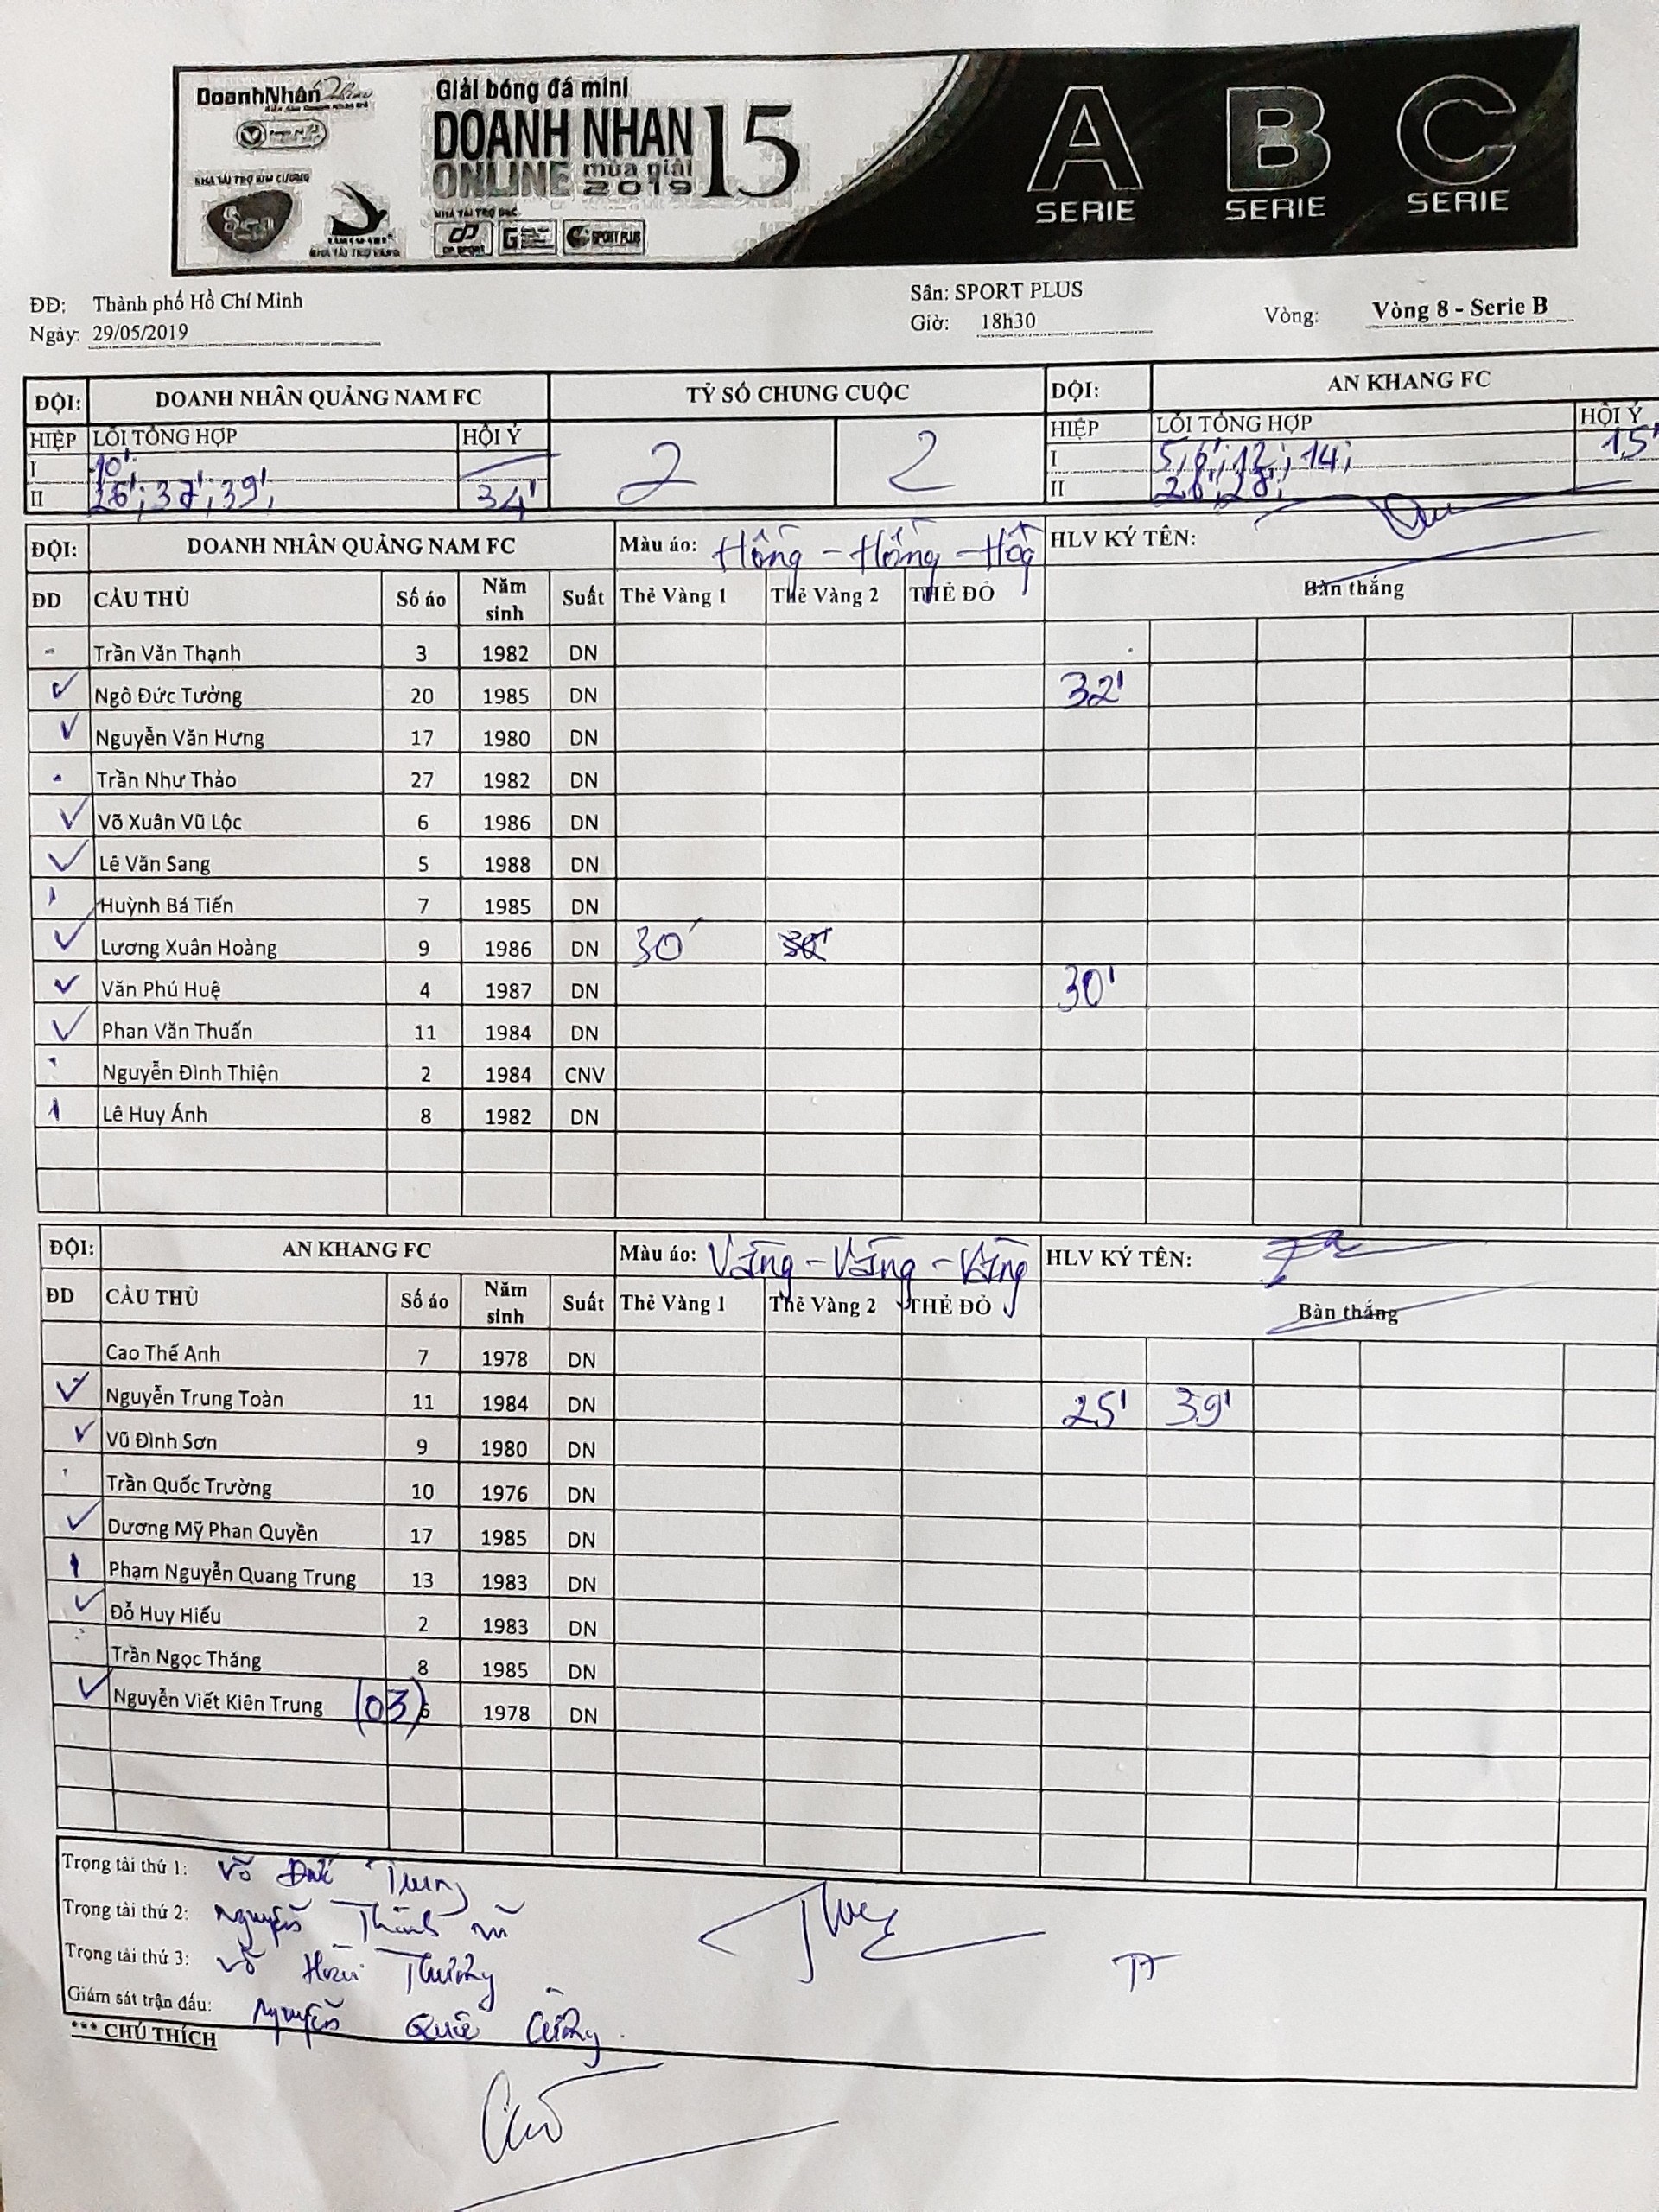 DoanhNhân
Giải bóng đá mini
DOANH NHAN 15
ONLINE mùa giải 2019
NHÀ TÀI TRỢ KIM CƯƠNG
NHÀ TÀI TRỢ BẠC
SPORT PLUS
NHÀ TÀI TRỢ VÀNG
A SERIE B SERIE C SERIE
ĐĐ: Thành phố Hồ Chí Minh Sân: SPORT PLUS
Ngày: 29/05/2019 Giờ: 18h30 Vòng: Vòng 8 - Serie B
ĐỘI: DOANH NHÂN QUẢNG NAM FC TỶ SỐ CHUNG CUỘC ĐỘI: AN KHANG FC
HIỆP LỖI TỔNG HỢP HỘI Ý 2 2 HIỆP LỖI TỔNG HỢP HỘI Ý
I 10' I 5, 6'; 12'; 14; 15'
II 34' II 26', 28';
ĐỘI: DOANH NHÂN QUẢNG NAM FC Màu áo: Hồng - Hồng - Hồng HLV KÝ TÊN:
ĐD CẦU THỦ Số áo Năm sinh Suất Thẻ Vàng 1 Thẻ Vàng 2 THẺ ĐỎ Bàn thắng
Trần Văn Thạnh 3 1982 DN
Ngô Đức Tưởng 20 1985 DN 32'
Nguyễn Văn Hưng 17 1980 DN
Trần Như Thảo 27 1982 DN
Võ Xuân Vũ Lộc 6 1986 DN
Lê Văn Sang 5 1988 DN
Huỳnh Bá Tiến 7 1985 DN
Lương Xuân Hoàng 9 1986 DN 30' 30'
Văn Phú Huệ 4 1987 DN 30'
Phan Văn Thuấn 11 1984 DN
Nguyễn Đình Thiện 2 1984 CNV
Lê Huy Ánh 8 1982 DN
ĐỘI: AN KHANG FC Màu áo: Vàng - Vàng - Vàng HLV KÝ TÊN:
ĐD CẦU THỦ Số áo Năm sinh Suất Thẻ Vàng 1 Thẻ Vàng 2 THẺ ĐỎ Bàn thắng
Cao Thế Anh 7 1978 DN
Nguyễn Trung Toàn 11 1984 DN 25' 39'
Vũ Đình Sơn 9 1980 DN
Trần Quốc Trường 10 1976 DN
Dương Mỹ Phan Quyền 17 1985 DN
Phạm Nguyễn Quang Trung 13 1983 DN
Đỗ Huy Hiếu 2 1983 DN
Trần Ngọc Thăng 8 1985 DN
Nguyễn Viết Kiên Trung (03) 1978 DN
Trọng tài thứ 1: Võ Đức Trung
Trọng tài thứ 2: Nguyễn Thành
Trọng tài thứ 3: Võ Hoài Thương
Giám sát trận đấu: Nguyễn Quốc Cường
*** CHÚ THÍCH